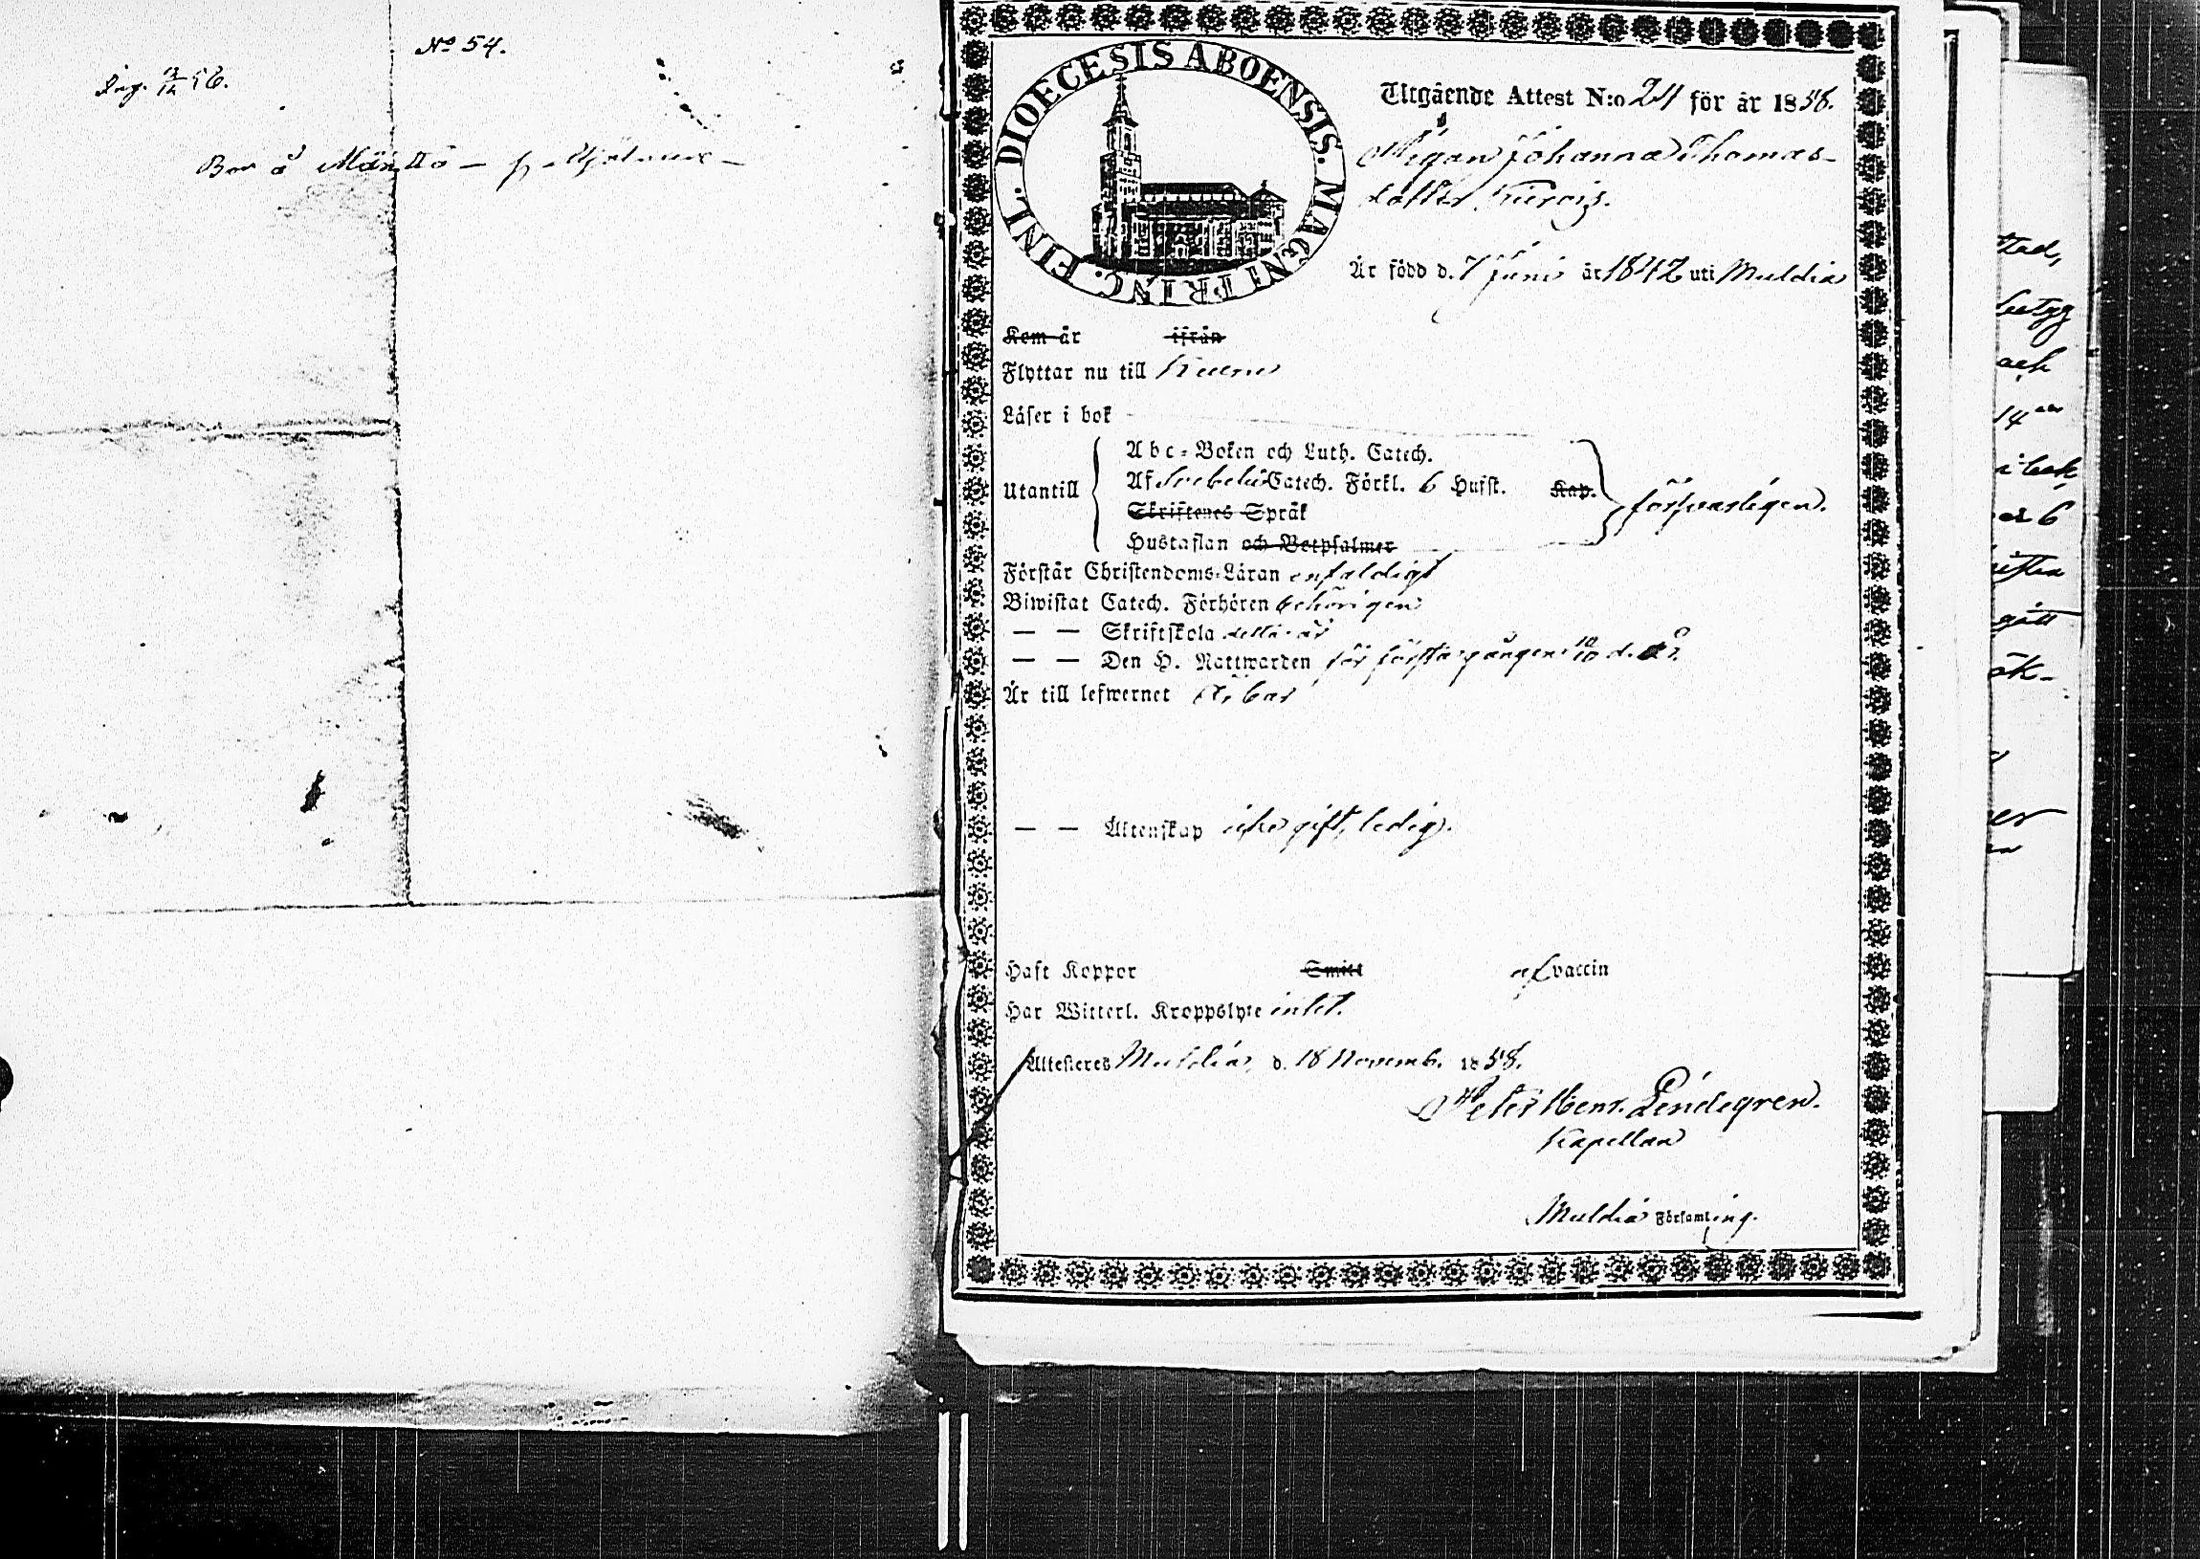 No 54.
Ing. 56.
Bor å Mänttä —
DIOECESIS ABOENSIS. MAGNI PRINC. FINL.
Utgående Attest N:o 24 för år 1858.
Pigan Johanna Thomas-
dotter
Är född d. 7 Juni år 1842 uti Muldia
Kom år ifrån
Flyttar nu till Keuru
Läser i bok
Utantill
Abc-Boken och Luth. Catech.
Af Svebelii Catech. Förkl. 6 Hufst. Kap.
Skriftenes Språk
Hustaflan och Botpsalmer
försvarligen.
Förstår Christendoms-Läran enfaldigt
Biwistat Catech. Förhören behörigen
— — Skriftskola detta år
— — Den H. Nattwarden för första gången 10/10 d. å.
Är till lefwernet ärbar
— — Äktenskap icke gift, ledig.
Haft Koppor Smitt af vaccin
Har Witterl. Kroppslyte intet.
Attesteres Muldia, d. 18 Novemb. 1858.
Peter Henr. Lindegren.
Kapellan
Muldia Församling.
stad,
betyg
och
14
i bok
6
gått
ök-